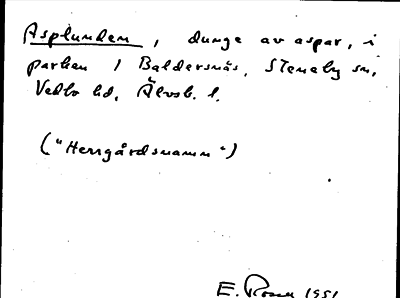 Asplunden, dunge av aspar, i
parken / Baldersnäs, Steneby sn,
Vedbo hd, Älvsb. l.
("Herrgårdsnamn")
E. Rosell 1951